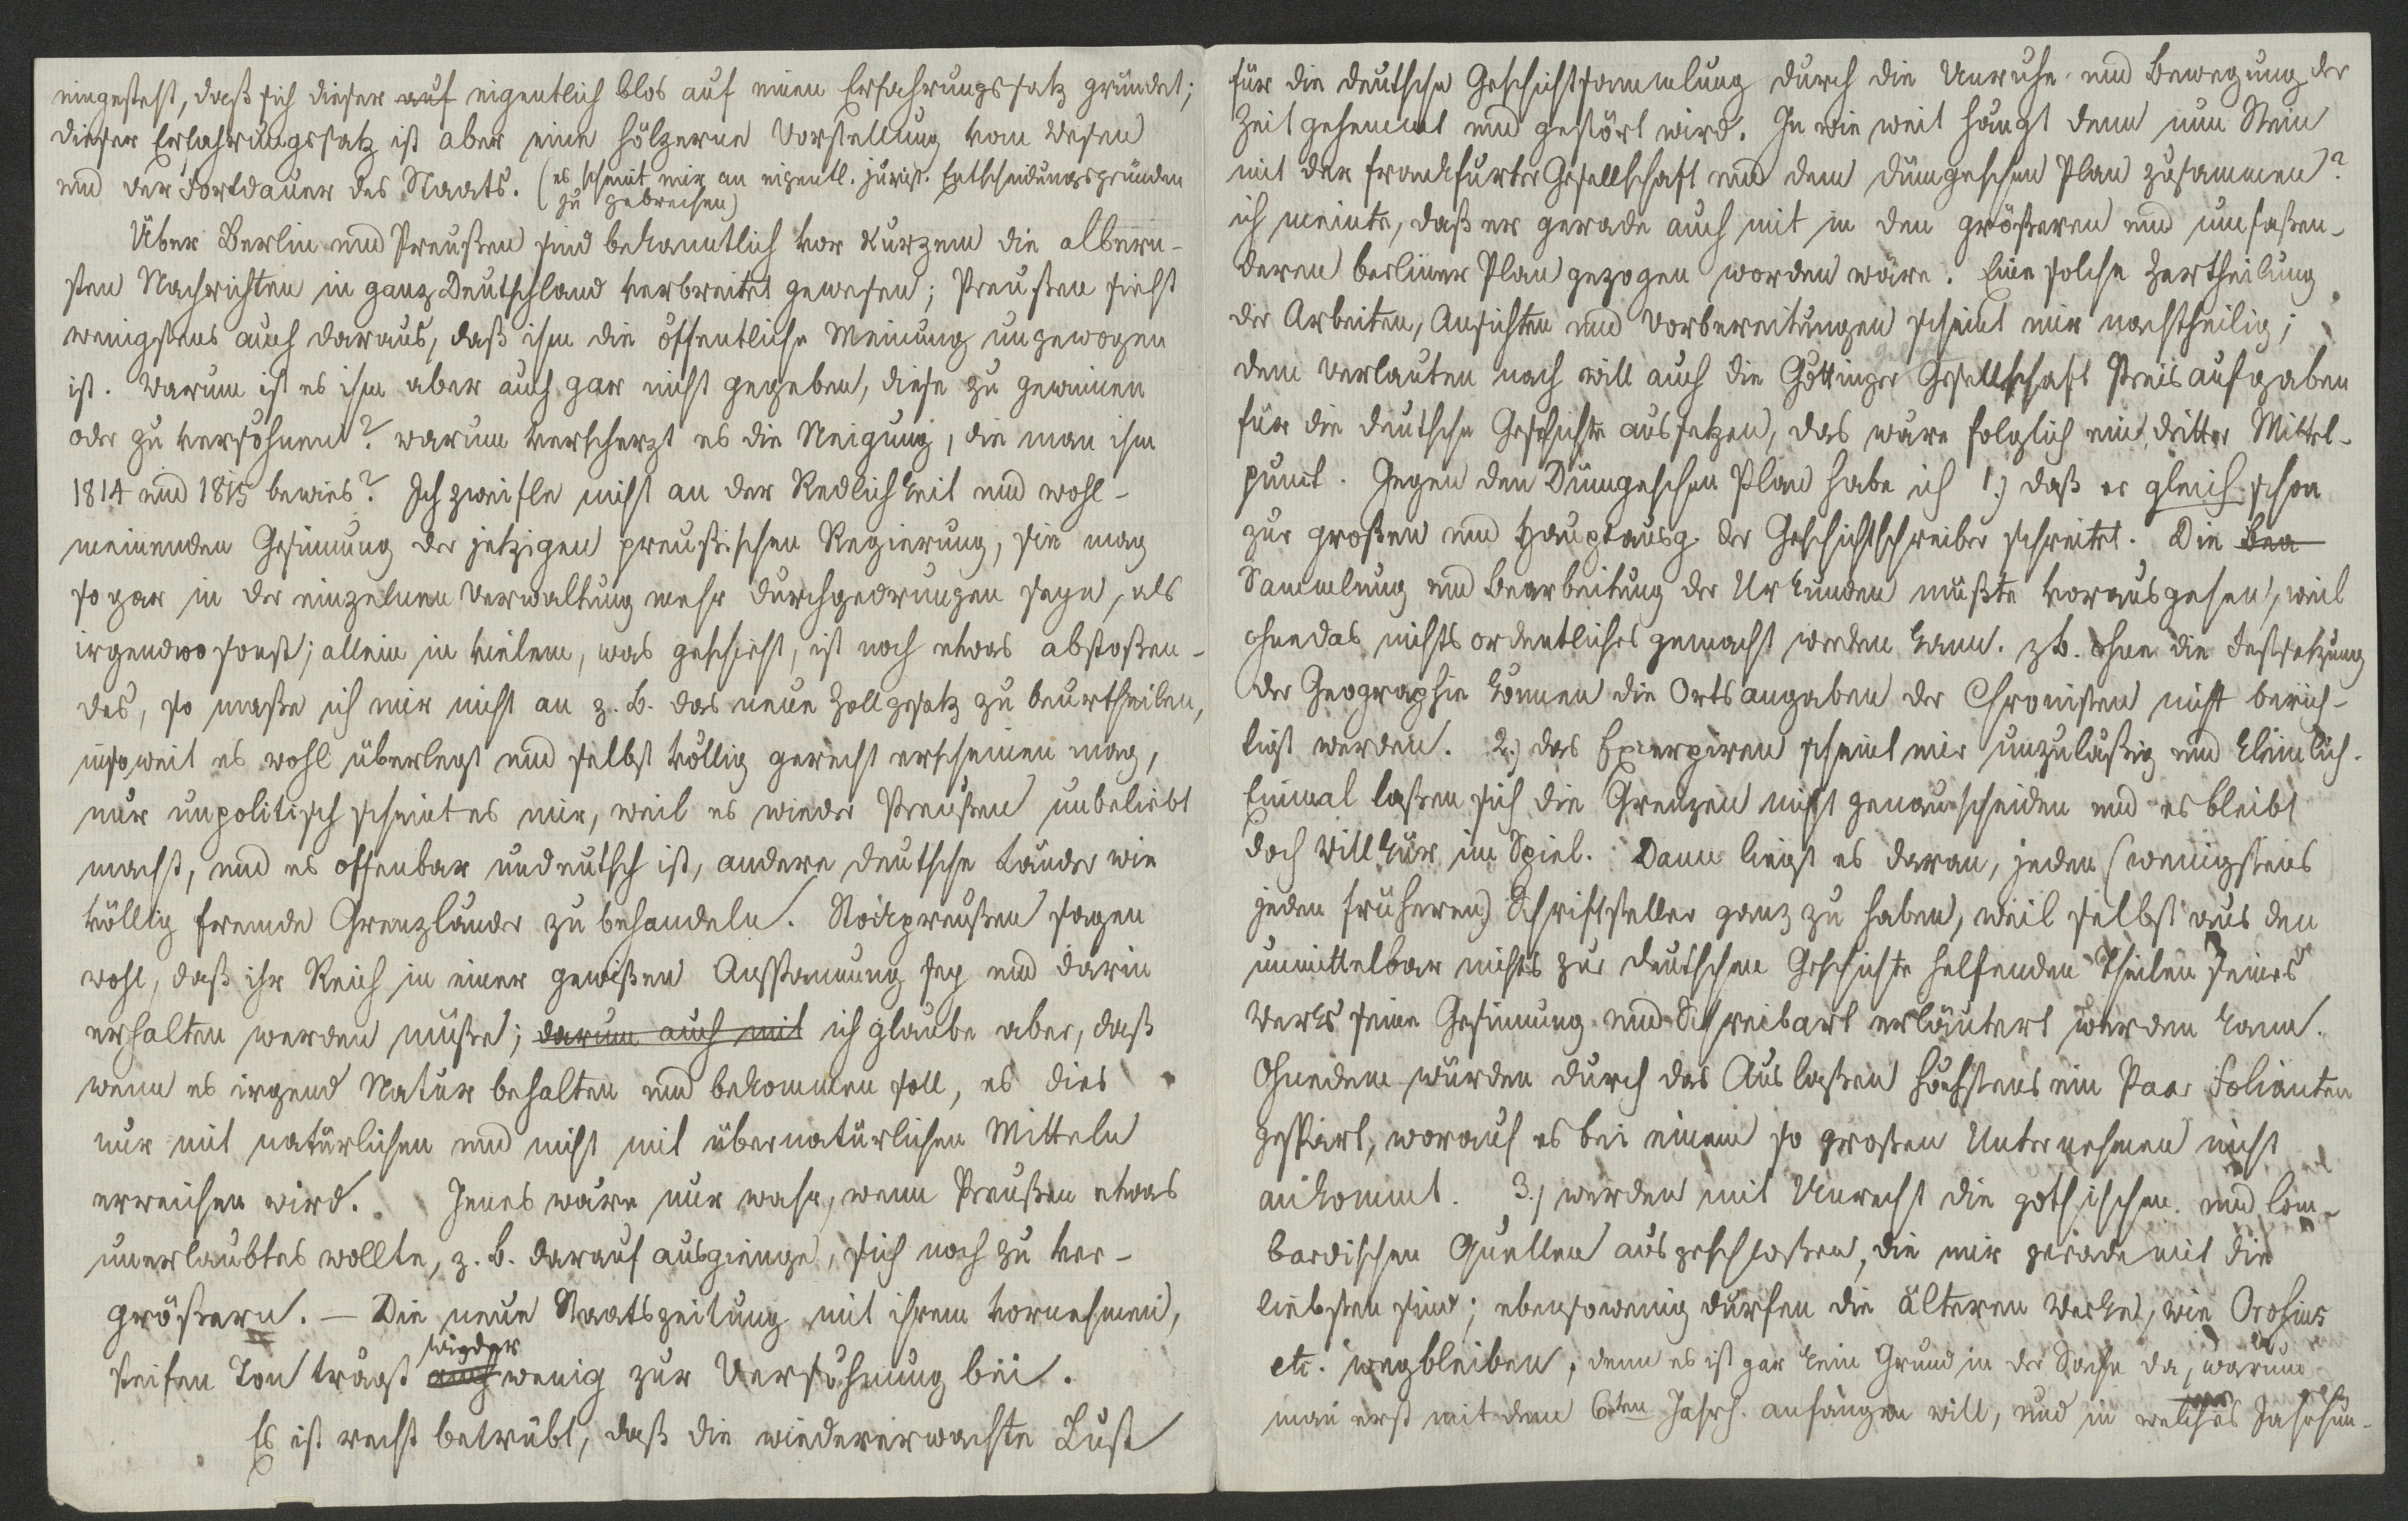 eingesteht, daß sich dieser auf eigentlich blos auf einen Erfahrungssatz gründet;
dieser Erfahrungssatz ist aber eine hölzerne Vorstellung vom Wesen
und der Fortdauer des Staats. (es scheint mir an eigentl. jurist. Entscheidungsgründen
zu gebrechen)
Über Berlin und Preußen sind bekanntlich vor kurzem die albern-
sten Nachrichten in ganz Deutschland verbreitet gewesen; Preußen sieht
wenigstens auch daraus, daß ihm die öffentliche Meinung ungewogen
ist. Warum ist es ihm aber auch gar nicht gegeben, diese zu gewinnen
oder zu versöhnen? warum verscherzt es die Neigung, die man ihm
1814 und 1815 bewies? Ich zweifle nicht an der Redlichkeit und wohl-
meinenden Gesinnung der jetzigen preußischen Regierung, sie mag
sogar in der einzelnen Verwaltung mehr durchgedrungen seyn, als
irgendwo sonst; allein in vielem, was geschieht, ist noch etwas abstoßen-
des, so maße ich mir nicht an z. b. das neue Zollgesetz zu beurtheilen,
insoweit es wohl überlegt und selbst völlig gerecht erscheinen mag,
nur unpolitisch scheint es mir, weil es wieder Preußen unbeliebt
macht, und es offenbar undeutsch ist, andere deutsche Länder wie
völlig fremde Grenzländer zu behandeln. Stockpreußen sagen
wohl, daß ihr Reich in einer gewißen Anspannung sey und darin
erhalten werden müße; darum auch mit ich glaube aber, daß
wenn es irgend Natur behalten und bekommen soll, es dies
nur mit natürlichen und nicht mit übernatürlichen Mitteln
erreichen wird. Jenes wäre nur wahr, wenn Preußen etwas
unerlaubtes wollte, z. b. darauf ausgienge, sich noch zu ver-
größern. — Die neue Staatszeitung mit ihrem vornehmen,
wieder
steifen Ton trägt auch wenig zur Versöhnung bei.
Es ist recht betrübt, daß die wiedererwachte Lust
für die deutsche Geschichtsammlung durch die Unruhe und Bewegung der
Zeit gehemmt und gestört wird. In wie weit hängt denn nun Stein
mit der frankfurter Gesellschaft und dem dümgeschen Plan zusammen?
ich meinte, daß er gerade auch mit in den größeren und umfaßen-
deren berliner Plan gezogen worden wäre. Eine solche Zertheilung
der Arbeiten, Ansichten und Vorbereitungen scheint mir nachtheilig;
dem Verlauten nach will auch die Göttinger Gesellschaft Preisaufgaben
für die deutsche Geschichte aussetzen, das wäre folglich ein dritter Mittel-
punct. Gegen den Dümgeschen Plan habe ich 1.) daß er gleich schon
zur großen und Hauptausg. der Geschichtschreiber schreitet. Die Bea
Sammlung und Bearbeitung der Urkunden müßte vorausgehen, weil
ohne das nichts ordentliches gemacht werden kann. zb. ohne die Festsetzung
der Geographie können die Ortsangaben der Chronisten nicht berich-
tigt werden. 2.) das Excerpiren scheint mir unzuläßig und kleinlich.
Einmal laßen sich die Grenzen nicht genau scheiden und es bleibt
doch Willkür im Spiel. Dann liegt es daran, jeden (wenigstens
jeden früheren) Schriftsteller ganz zu haben, weil selbst aus den
unmittelbar nichts zur deutschen Geschichte helfenden Theilen seines
Werks seine Gesinnung und Schreibart erläutert werden kann.
Ohnedem würden durch das Auslaßen höchstens ein Paar Folianten
gespart, worauf es bei einem so großen Unternehmen nicht
ankommt. 3.) werden mit Unrecht die gothischen und lom-
bardischen Quellen ausgeschloßen, die mir gerade mit die
liebsten sind; ebensowenig dürfen die älteren Werke, wie Orosius
etc. wegbleiben, denn es ist gar kein Grund in der Sache da, warum
man erst mit dem 6ten Jahrh. anfangen will, und in welches Jahrhun-